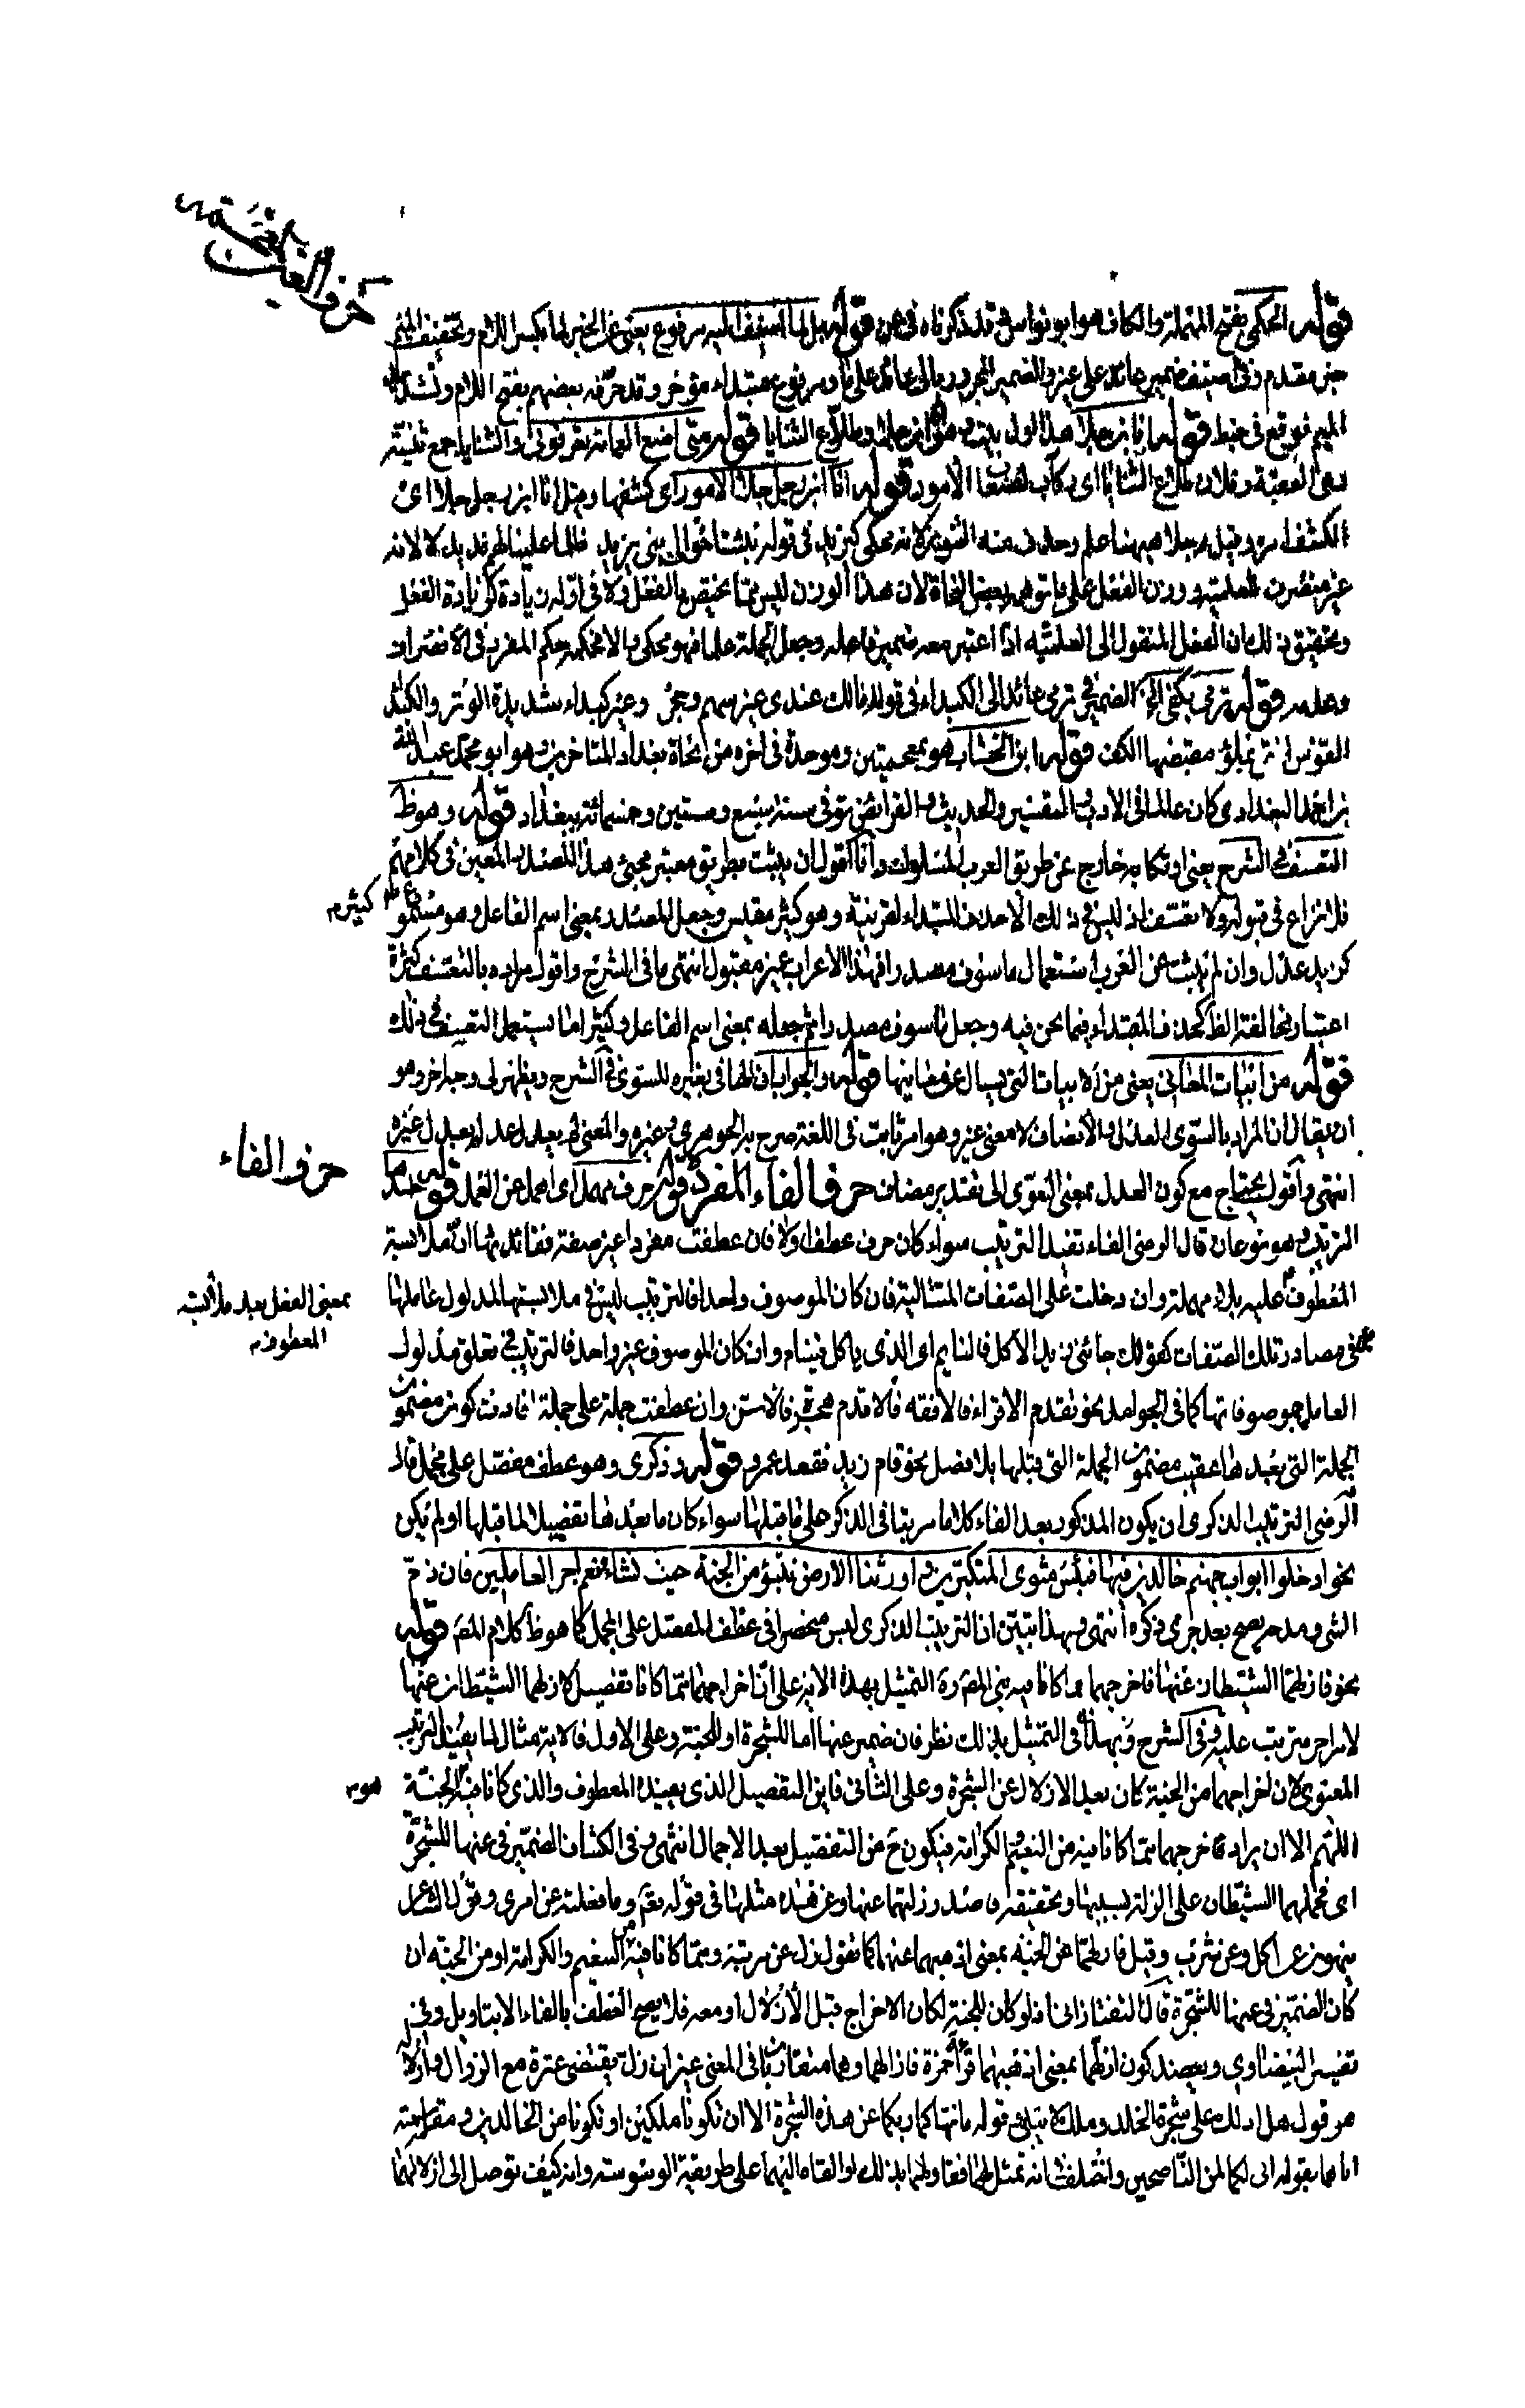 حرف الغين
قوله الحكمي بفتح المهملة والكاف هو ابو نواس وقد ذكرناه في عن قوله بل لما اضيف اليه مرفوع يعني غير الخبر لما بكسر اللام وتخفيف الميم
خبر مقدم وفي اضيف ضمير عائد على غير والضمير المجرور بالى عائد على ما ومرفوع مبتداء مؤخر وقد حرفه بعضهم بفتح اللام وتشديد
الميم فوقع في خبط قوله انا ابن جلا هذا اول بيت هو انا ابن جلا وطلاع الثنايا قوله متى اضع العمامة تعرفوني والثنايا جمع ثنية
وهي العقبة وفلان طلاع الثنايا اي ركاب لصعاب الامور قوله انا ابن رجل جلا الامور اي كشفها وقيل انا ابن رجل جلا اي
انكشف امره وقيل جلا ههنا علم وحذف منه التنوين لانه محكي كيزيد في قوله نبئت اخوالي بني يزيد ظلما علينا لهم فديد لا لانه
غير منصرف للعلمية ووزن الفعل على ما توهمه بعض النحاة لان هذا الوزن ليس مما يختص بالفعل ولا في اوله زيادة كزيادة الفعل
وتحقيق ذلك ان الفعل المنقول الى العلمية اذا اعتبر معه ضمير فاعله وجعل الجملة علما فهو محكي والا فحكمه حكم المفرد في الانصراف
وعدمه قوله ترمي بكفي الخ الضمير في ترمي عائد الى الكبداء في قوله مالك عندي غير سهم وحجر وغير كبداء شديدة الوتر والكبداء
القوس التي يملؤ مقبضها الكف قوله ابن الخشاب هو بمعجمتين وموحدة في اخره من نحاة بغداد المتاخرين وهو ابو محمد عبد الله
بن احمد البغدادي كان عالما في الادب والتفسير والحديث والفرائض توفي سنة سبع وستين وخمسمائة ببغداد قوله وهو ظ
التعسف في الشرح يعني ارتكابه خارج عن طريق العرب المسلوك وانا اقول ان يثبت بطريق معتبر مجيئ هذا المصدر المعين في كلامهم
فلا نزاع في قبوله ولا تعسف اذ ليس في ذلك الا حذف المبتداء لقرينة وهو كثير مقيس وجعل المصدر بمعنى اسم الفاعل وهو مسموع كثير
كزيد عدل وان لم يثبت عن العرب استعمال ماسوف مصدرا فهذا الاعراب غير مقبول انتهى ما في الشرح واقول مراده بالتعسف كثرة
اعتبار مخالفة الظ كحذف المبتداء فيما نحن فيه وجعل ماسوف مصدرا ثم جعله بمعنى اسم الفاعل وكثيرا ما يستعمل التعسف في ذلك
قوله من ابيات المعاني يعني من الابيات التي يسال عن معاينها قوله والجواب ان الها في بغيره للسوى في الشرح ويظهر لي وجه اخر وهو
ان يقال ان المراد بالسوى العدل والانصاف لا معنى غير وهو امر ثابت في اللغة صرح به الجوهري وغيره والمعنى لم يعدل عدله بعدل غيره
انتهى واقول يحتاج مع كون العدل بمعنى السوى الى تقدير مضاف حرف الفاء المفردة قوله حرف مهمل اي اهمل عن العمل قوله احدها
حرف الفاء
الترتيب وهو نوعان قال الرضي الفاء تفيد الترتيب سواء كان حرف عطف اولا فان عطفت مفردا غير صفة ففائدتها ان ملابسة
المعطوف عليه بلا مهملة وان دخلت على الصفات المتتالية فان كان الموصوف واحدا فالترتيب ليس في ملابستها لمدلول عاملها
بمعنى الفعل بعد ملابسته
المعطوف
في مصادر تلك الصفات كقولك جائني زيد الاكل فالنايم اي الذي ياكل فينام وان كان الموصوف غير واحد فالترتيب في تعلق مدلول
العامل بموصوفاتها كما في الجوامد نحو تقدم الاقراء فالافقه فالاقدم هجرة فالاسن وان عطفت جملة على جملة افادت كون مضمون
الجملة التي بعدها عقيب مضمون الجملة التي قبلها بلا فصل نحو قام زيد فقعد عمرو قوله وذكرى وهو عطف مفصل على مجمل قال
الرضي الترتيب الذكرى ان يكون المذكور بعد الفاء كلاما مرتبا في الذكر على ما قبلها سواء كان ما بعدها تفصيلا لما قبلها او لم يكن
نحو ادخلوا ابواب جهنم خالدين فيها فبئس مثوى المتكبرين واورثنا الارض نتبؤ من الجنة حيث نشاء فنعم اجر العاملين فان ذم
الشي ومدحه يصح بعد جرى ذكره انتهى وبهذا تبين ان الترتيب الذكرى ليس منحصرا في عطف المفصل على المجمل كما هو ظ كلام المص قوله
نحو فازلهما الشيطان عنها فاخرجهما مما كانا فيه بنى المص ره التمثيل بهذه الاية على ان اخراجهما مما كانا تفصيل لازلهما الشيطان عنها
لا امر اخر مترتب عليه وفي الشرح وبهذا في التمثيل بذلك نظر فان ضمير عنها اما للشجرة او للجنة وعلى الاول فالاية مثال لما يفيد الترتيب
المعنوي لان اخراجهما من الجنة كان بعد الازلال عن الشجرة وعلى الثاني فاين التفصيل الذي يفيده المعطوف والذي كانا فيه هو الجنة
اللهم الا ان يراد فاخرجهما مما كانا فيه من النعيم والكرامة فيكون ح من التفصيل بعد الاجمال انتهى وفي الكشاف الضمير في عنها للشجرة
اي فحملهما الشيطان على الزلة بسببها وتحقيقه فاصدر زلتهما عنها وعن هذه مثلها في قوله تعم وما فعلته عن امري وقول الشاعر
ينهون عن اكل وعن شرب وقيل فازلهما عن الجنة بمعنى اذهبهما عنها كما تقول زل عن مرتبة ومما كانا فيه من النعيم والكرامة او من الجنة ان
كان الضمير في عنها للشجرة قال التفتازاني اذ لو كان للجنة لكان الاخراج قبل الازلال او معه فلا يصح العطف بالفاء الا بتاويل وفي
تفسير البيضاوي ويعضد كون ازلهما بمعنى اذهبهما قرأة حمزة فازالهما وهما متقاربان في المعنى غير ان زل يقتضي عثرة مع الزوال وازلاله
هو قول هل ادلك على شجرة الخلد وملك لا يبلى وقوله ما نهاكما ربكما عن هذه الشجرة الا ان تكونا ملكين او تكونا من الخالدين ومقاسمته
اياهما بقوله اني لكما لمن الناصحين واختلف في انه تمثل لهما فقاولهما بذلك او القاه اليهما على طريقة الوسوسة وانه كيف توصل الى ازلالهما